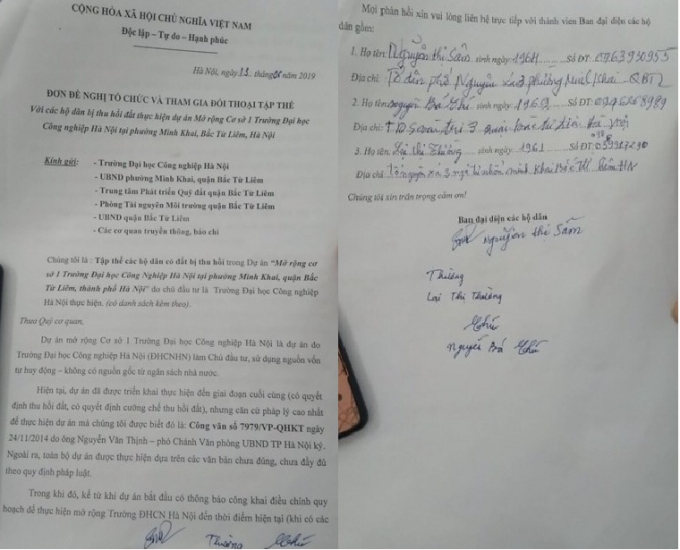 CỘNG HÒA XÃ HỘI CHỦ NGHĨA VIỆT NAM
Độc lập – Tự do – Hạnh phúc
Hà Nội, ngày 15 tháng năm 2019
ĐƠN ĐỀ NGHỊ TỔ CHỨC VÀ THAM GIA ĐỐI THOẠI TẬP THỂ
Với các hộ dân bị thu hồi đất thực hiện dự án Mở rộng Cơ sở 1 Trường Đại học
Công nghiệp Hà Nội tại phường Minh Khai, Bắc Từ Liêm, Hà Nội
Kính gửi:
- Trường Đại học Công nghiệp Hà Nội
- UBND phường Minh Khai, quận Bắc Từ Liêm
- Trung tâm Phát triển Quỹ đất quận Bắc Từ Liêm
- Phòng Tài nguyên Môi trường quận Bắc Từ Liêm
- UBND quận Bắc Từ Liêm
- Các cơ quan truyền thông, báo chí
Chúng tôi là : Tập thể các hộ dân có đất bị thu hồi trong Dự án "Mở rộng cơ
sở 1 Trường Đại học Công Nghiệp Hà Nội tại phường Minh Khai, quận Bắc
Từ Liêm, thành phố Hà Nội" do chủ đầu tư là Trường Đại học Công nghiệp
Hà Nội thực hiện. (có danh sách kèm theo).
Thưa Quý cơ quan,
Dự án mở rộng Cơ sở 1 Trường Đại học Công nghiệp Hà Nội là dự án do
Trường Đại học Công nghiệp Hà Nội (ĐHCNHN) làm Chủ đầu tư, sử dụng nguồn vốn
tự huy động – không có nguồn gốc từ ngân sách nhà nước.
Hiện tại, dự án đã được triển khai thực hiện đến giai đoạn cuối cùng (có quyết
định thu hồi đất, có quyết định cưỡng chế thu hồi đất), nhưng căn cứ pháp lý cao nhất
để thực hiện dự án mà chúng tôi được biết đó là: Công văn số 7979/VP-QHKT ngày
24/11/2014 do ông Nguyễn Văn Thịnh – phó Chánh Văn phòng UBND TP Hà Nội ký.
Ngoài ra, toàn bộ dự án được thực hiện dựa trên các văn bản chưa đúng, chưa đầy đủ
theo quy định pháp luật.
Trong khi đó, kể từ khi dự án bắt đầu có thông báo công khai điều chỉnh quy
hoạch để thực hiện mở rộng Trường ĐHCN Hà Nội đến thời điểm hiện tại (khi có các
Thường
Mọi phản hồi xin vui lòng liên hệ trực tiếp với thành viên Ban đại diện các hộ
dân gồm:
1. Họ tên: Nguyễn Thị Sâm sinh ngày: 1964 Số ĐT: 0763950955
Địa chỉ: Tổ dân phố Nguyên Xá 3 phường Minh Khai
2. Họ tên: Nguyễn Bá sinh ngày: Số ĐT:
Địa chỉ: TDS
3. Họ tên: Thị Thường sinh ngày: 1961 Số ĐT:
Địa chỉ: Minh Khai HN
Chúng tôi xin trân trọng cảm ơn!
Ban đại diện các hộ dân
Nguyễn Thị Sâm
Thường
Lại Thị Thường
Nguyễn Bá